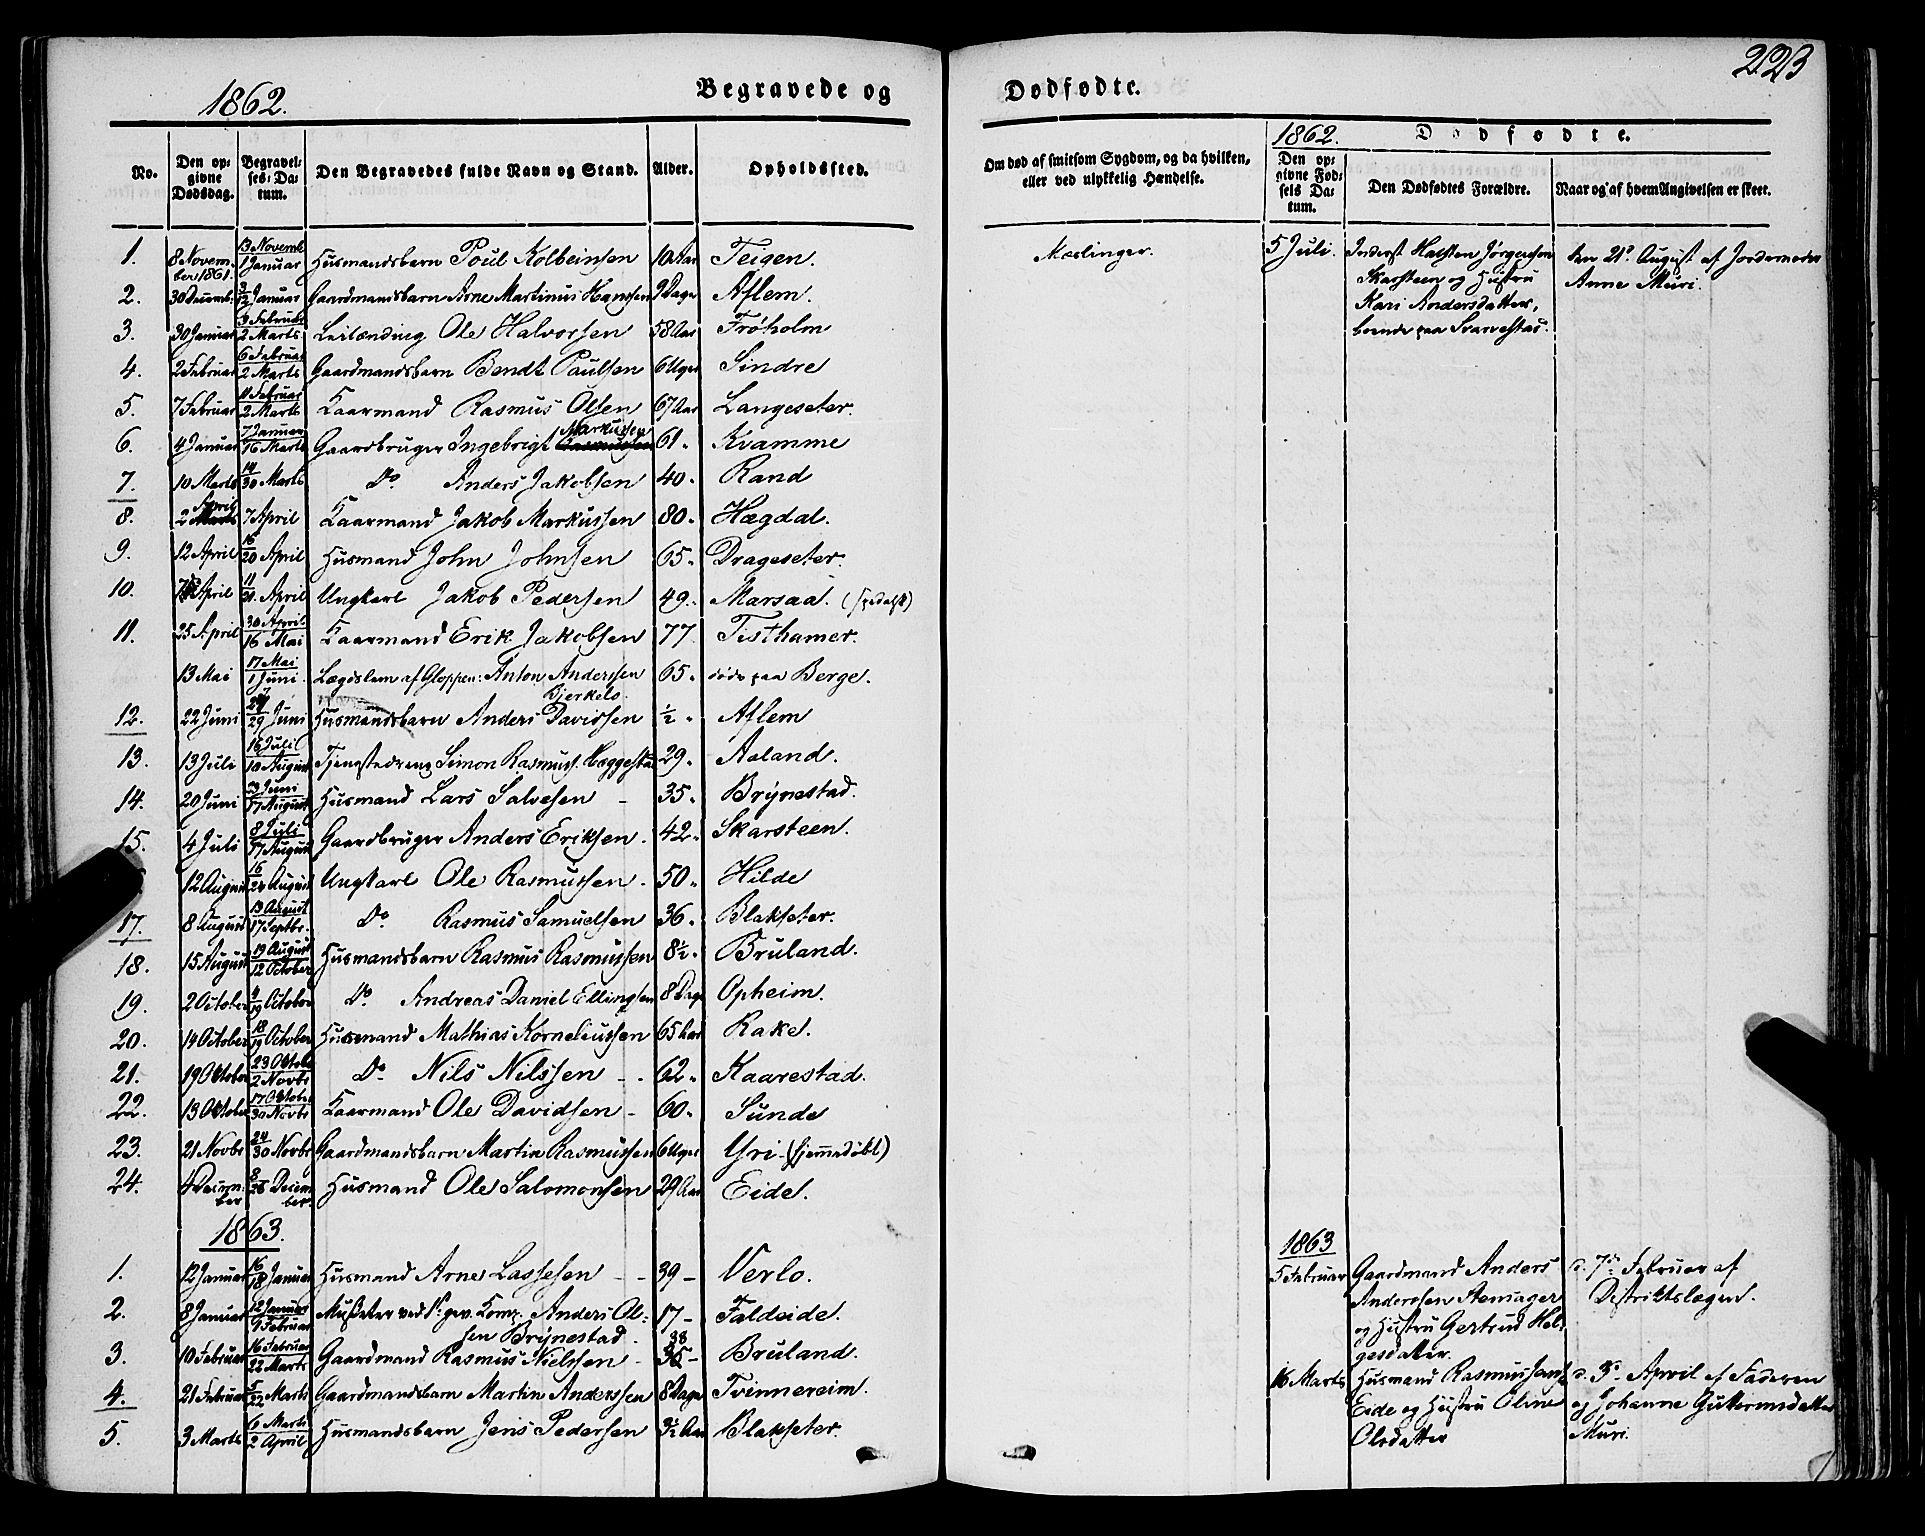 223
1862.
Begravede og
Dødfødte.
No.
Den opgivne Dødsdag.
Begravelses-Datum.
Den Begravedes fulde Navn og Stand.
Alder.
Opholdssted.
Om død af smitsom Sygdom, og da hvilken, eller ved ulykkelig Hændelse.
1862. Dødfødte.
Den opgivne Fødsels Datum.
Den Dødfødtes Forældre.
Naar og af hvem Angivelsen er skeet.
1. 8 November 1861. 13 Novemb 1 Januar Husmandsbarn Poul Kolbeinsen 10 Aar Teigen. Mæslinger.
2. 30 Decemb. 3/12 Januar Gaardmandsbarn Arne Martinus Hanssen 9 Dage Aflem.
3. 30 Januar Februar 2 Marts Leilænding Ole Halvorsen 58 Aar Frøholm
4. 2 Februar 6 Februar 2 Marts Gaardmandsbarn Bendt Paulsen 6 Uger Sindre
5. 7 Februar 11 Februar 2 Marts Kaarmand Rasmus Olsen 67 Aar Langeseter.
6. 4 Januar 7 Januar 16 Marts Gaardbruger Ingebrigt Markussen 61. Kvamme
7. 10 Marts 14/30 Marts Do Anders Jakobsen 40. Rand
8. 2 April 7 April Kaarmand Jakob Markussen 80. Hægdal.
9. 12 April 16/20 April Husmand John Johnsen 65. Drageseter.
10. April 11/21. April Ungkarl Jakob Pedersen 49. Marsaa. (spedalsk)
11. 25 April 30 April 16 Mai Kaarmand Erik Jakobsen 77. Tisthamer.
13 Mai 17 Mai 1 Juni Lægdslem af Gloppen: Anton Anderssen Bjerkelo 65. døde paa Berge.
12. 22 Juni 27/29 Juni Husmandsbarn Anders Davidsen ½. Aflem
13. 13 Juli 16 Juli 10 August Tjenestedreng Simon Rasmuss. Heggestad 29. Aaland.
14. 20 Juni 23 Juni 17 August Husmand Lars Salvesen - 35. Brynestad.
15. 4 Juli 8 Juli 17 August Gaardbruger Anders Eriksen. 42. Skarsteen.
12 August 16/24 August Ungkarl Ole Rasmussen. 50. Hilde
17. 8 August 13 August 17 Septbr. Do. Rasmus Samuelsen 36. Blakseter.
18. 15 August 19 August 12 October Husmandsbarn Rasmus Rasmussen 8½. Bruland.
19. 2 October 4/19 October Do. Andreas Daniel Ellingsen 8 Dage Opheim.
20. 14 October 18/19 October Husmand Mathias Korneliussen 65 Aar Rake.
21. 19 Oktober 23 Oktobr 2 Novbr Do. Nils Nilssen - . 62. Kaarestad.
22. 13 Oktober 17 Oktober 30 Novbr Kaarmand Ole Davidsen - 60. Sunde
23. 21 Novbr 24/30 Novbr Gaardmandsbarn Martin Rasmussen 6 Uger Yri. (hjemmedøbt)
24. 4 December 8/26 December. Husmand Ole Salomonsen 29 Aar Eide.
1863.
1. 12 Januar 16/18 Januar Husmand Arne Lassesen - - 39 - Verlo.
2. 8 Januar 12 Januar 9 Februar Musketer ved Komp. Anders Olsen Brynestad. 17 - Faldeide.
3. 10 Februar 16 Februar 22 Marts Gaardmand Rasmus Nielssen - 38 - Bruland.
4. 21 Februar 5/22 Marts Gaardmandsbarn Martin Anderssen 8 Dage Tvinnereim.
5. 3 Marts 6 Marts 2 April Husmandsbarn Jens Pedersen 3½ Aar Blakseter.
5 Juli. Inderst Halsten Jørgensen
Skarsteen og Hustru
Kari Andersdatter,
boende paa Svarvestad.
den 21de August af Jordemoder
Anne Muri.
1863
5 Februar Gaardmand Anders
Anderssen Aemager
og Hustru Gertrud Helgesdatter.
d. 7de Februar af
Distriktslægen.
16 Marts Husmand Rasmus
Eide og Hustru Oline
Olsdatter
d. 3. April af Faderen
og Johanne Guttormsdatter
Muri.